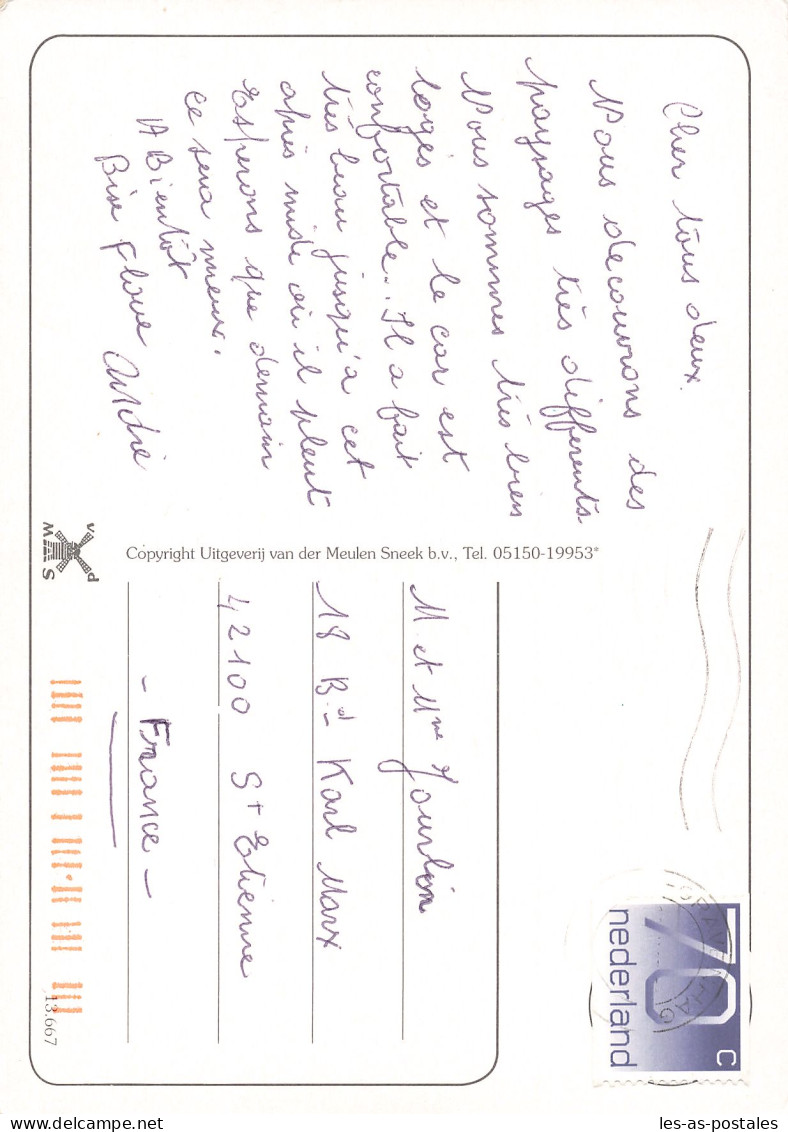 Cher tous deux.
Nous decouvrons des
paysages très differents
Nous sommes très bien
logés et le car est
confortable.. Il a fait
très beau jusqu'à cet
après midi où il pleut
Esperons que demain
ce sera mieux.
A Bientôt
Bise Flore André
v.
d
W
M
S
Copyright Uitgeverij van der Meulen Sneek b.v., Tel. 05150-19953*
M. et Mme Jourlin
18 Bd- Karl Marx
42100 St Etienne
- France -
13.667
70 c
nederland
les-as-postales